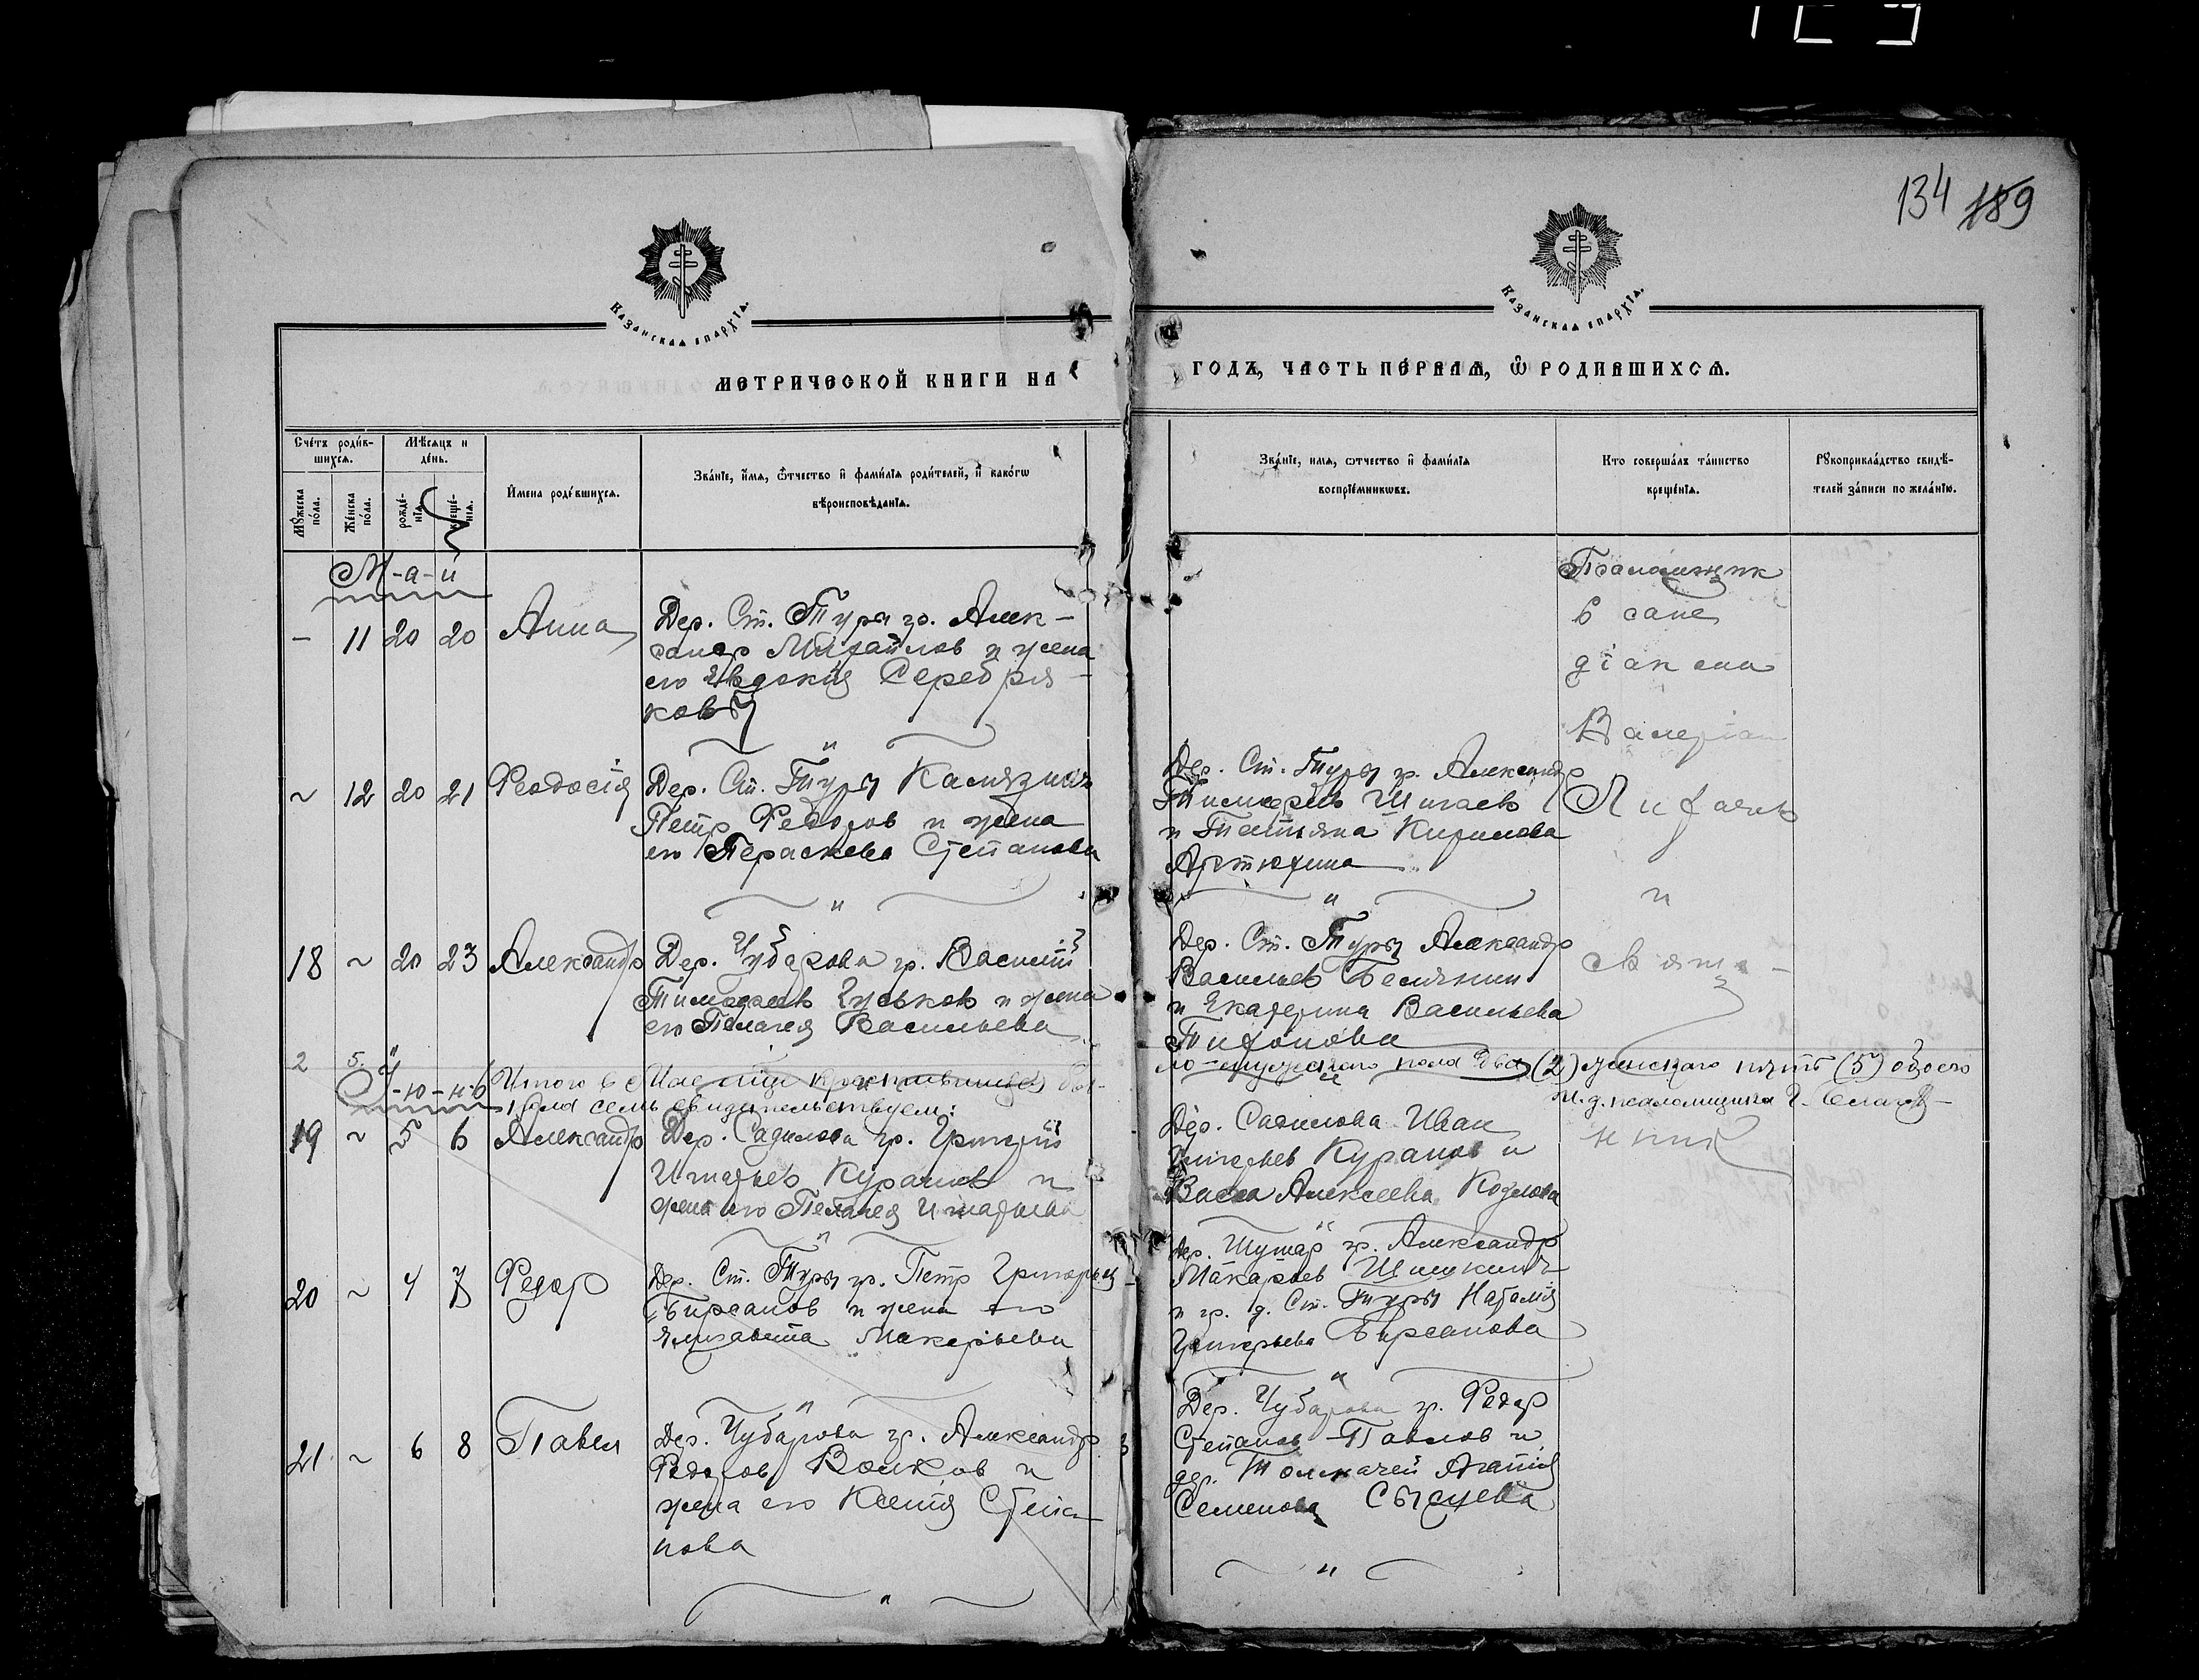 134 189
Казанская епархїя.
Казанская епархїя.
МЕТРИЧЕСКОЙ КНИГИ НА
ГОДЪ, ЧАСТЬ ПЕРВАЯ, Ѿ РОДИВШИХСЯ.
Счéтъ роди́в-
шихся.
Мѣсяцъ и
дéнь.
Мꙋжеска
по́ла.
Же́нска
по́ла.
рожде́-
нїя.
креще́-
нїя.
И́мена роди́вшихся.
Зва́нїе, и́мя, ѿтчество и фами́лїя роди́телей, и како́гѡ
вѣроисповѣ́данїя.
Зва́нїе, имя, ѡтчество и фами́лїя
воспрїе́мникѡвъ.
Кто соверша́лъ та́инство
креще́нїя.
Рꙋкоприкла́дство свидѣ́-
телей за́писи по жела́нїю.
М-а-й
– 11 20 20 Анна
Дер. Ст. Туры гр. Алек-
сандр Михайлов и жена
его Евдокия Серебря-
ковы
Псаломщик
в сане
діакона
Валеріан
Лихачев
и
Свяще-
нник
~ 12 20 21 Феодосія
Дер. Ст. Туры
Петр Федоров и жена
его Параскева Степанова
Дер. Ст. Туры гр. Александр
Тимофеев Шигаев
и Татьяна Кирилова
Артюхина
18 ~ 20 23 Александр
Дер. Чубарова гр. Василий
Тимофеев Гуськов и жена
его Пелагея Васильева
Дер. Ст. Туры Александр
Васильев Белянин
и Екатерина Васильева
Тихонова
2 5
Итого в Мае м-це крестившихся бы-
ло мужского пола два (2) женского пять (5) обоего
пола семь свидетельствуем:
И. д. псаломщика Г.
І-ю-н-ь
19 ~ 5 6 Александр
Дер. Садилова гр. Григорий
Игнатьев Куранов и
жена его Пелагея Игнатьева
Дер. Садилова Иван
Григорьев Куранов и
Васса Алексеева Козлова
20 ~ 4 7 Федор
Дер. Ст. Туры гр. Петр Григорьев
Бирсанов и жена его
Елизавета Макарьева
Дер. гр. Александр
Макарьев Шишкин
и гр. д. Ст. Туры Наталия
Григорьева Бирсанова
21 ~ 6 8 Павел
Дер. Чубарова гр. Александр
Федоров Волков и
жена его Ксения Степа-
нова
Дер. Чубарова гр. Федор
Степанов Павлов и
дер. Толкачей Агапия
Семенова Сысуева